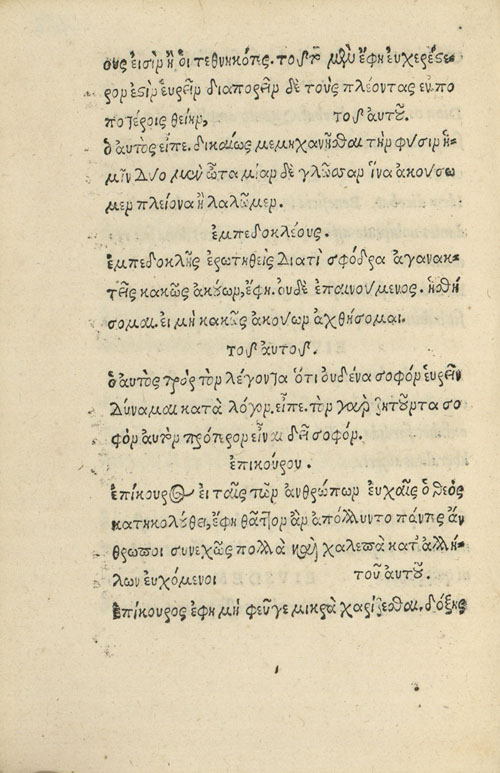 ους εἰσὶν ἢ ὁι τεθνηκότες. τοὺς μὲν ἔφη ἐυχερέςε-
ρον ἐςὶν ἑυρεῖν διαπορεῖν δὲ τοὺς πλέοντας
ποτέροις θείην, τοῦ ἀυτοῦ.
ὁ ἀυτὸς εἶπε. δικαίως μεμηχανῆσθαι τὴν φύσιν ἡ-
μῖν δύο μὲν ὦτα μίαν δὲ γλῶσσαν ἵνα ἀκούσω
μεν πλείονα ἢ λαλῶμεν.
ἐμπεδοκλέους.
ἐμπεδοκλῆς ἐρωτηθεὶς διατὶ σφόδρα ἀγανακ-
τεῖς κακῶς ἀκούων, ἔφη. ὀυδὲ ἐπαινούμενος. ἡσθή
σομαι. ἐι μὴ κακῶς ἀκούων ἀχθήσομαι.
τοῦ ἀυτοῦ.
ὁ ἀυτὸς πρὸς τὸν λέγοντα ὅτι ὀυδένα σοφὸν ἑυρεῖν
δύναμαι κατὰ λόγον. εἶπε. τὸν γὰρ ζητοῦντα σο
φὸν ἀυτὸν πρότερον εἶναι δεῖ σοφόν.
ἐπικούρου.
ἐπίκουρος ἐι ταῖς τῶν ἀνθρώπων ἐυχαῖς ὁ θεὸς
κατηκολύθει, ἔφη θᾶττον ἂν ἀπόλλυντο πάντες ἄν
θρωποι συνεχῶς πολλὰ καὶ χαλεπὰ κατ' ἀλλή-
λων ἐυχόμενοι τοῦ ἀυτοῦ.
ἐπίκουρος ἔφη μὴ φεῦγε μικρὰ χαρίζεσθαι. δόξεις